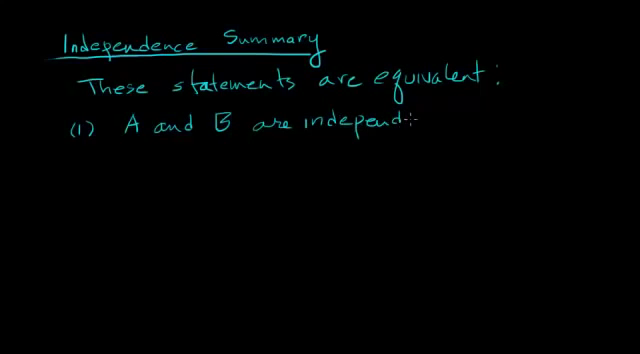 Independence Summary
These statements are equivalent:
(1) A and B are independ